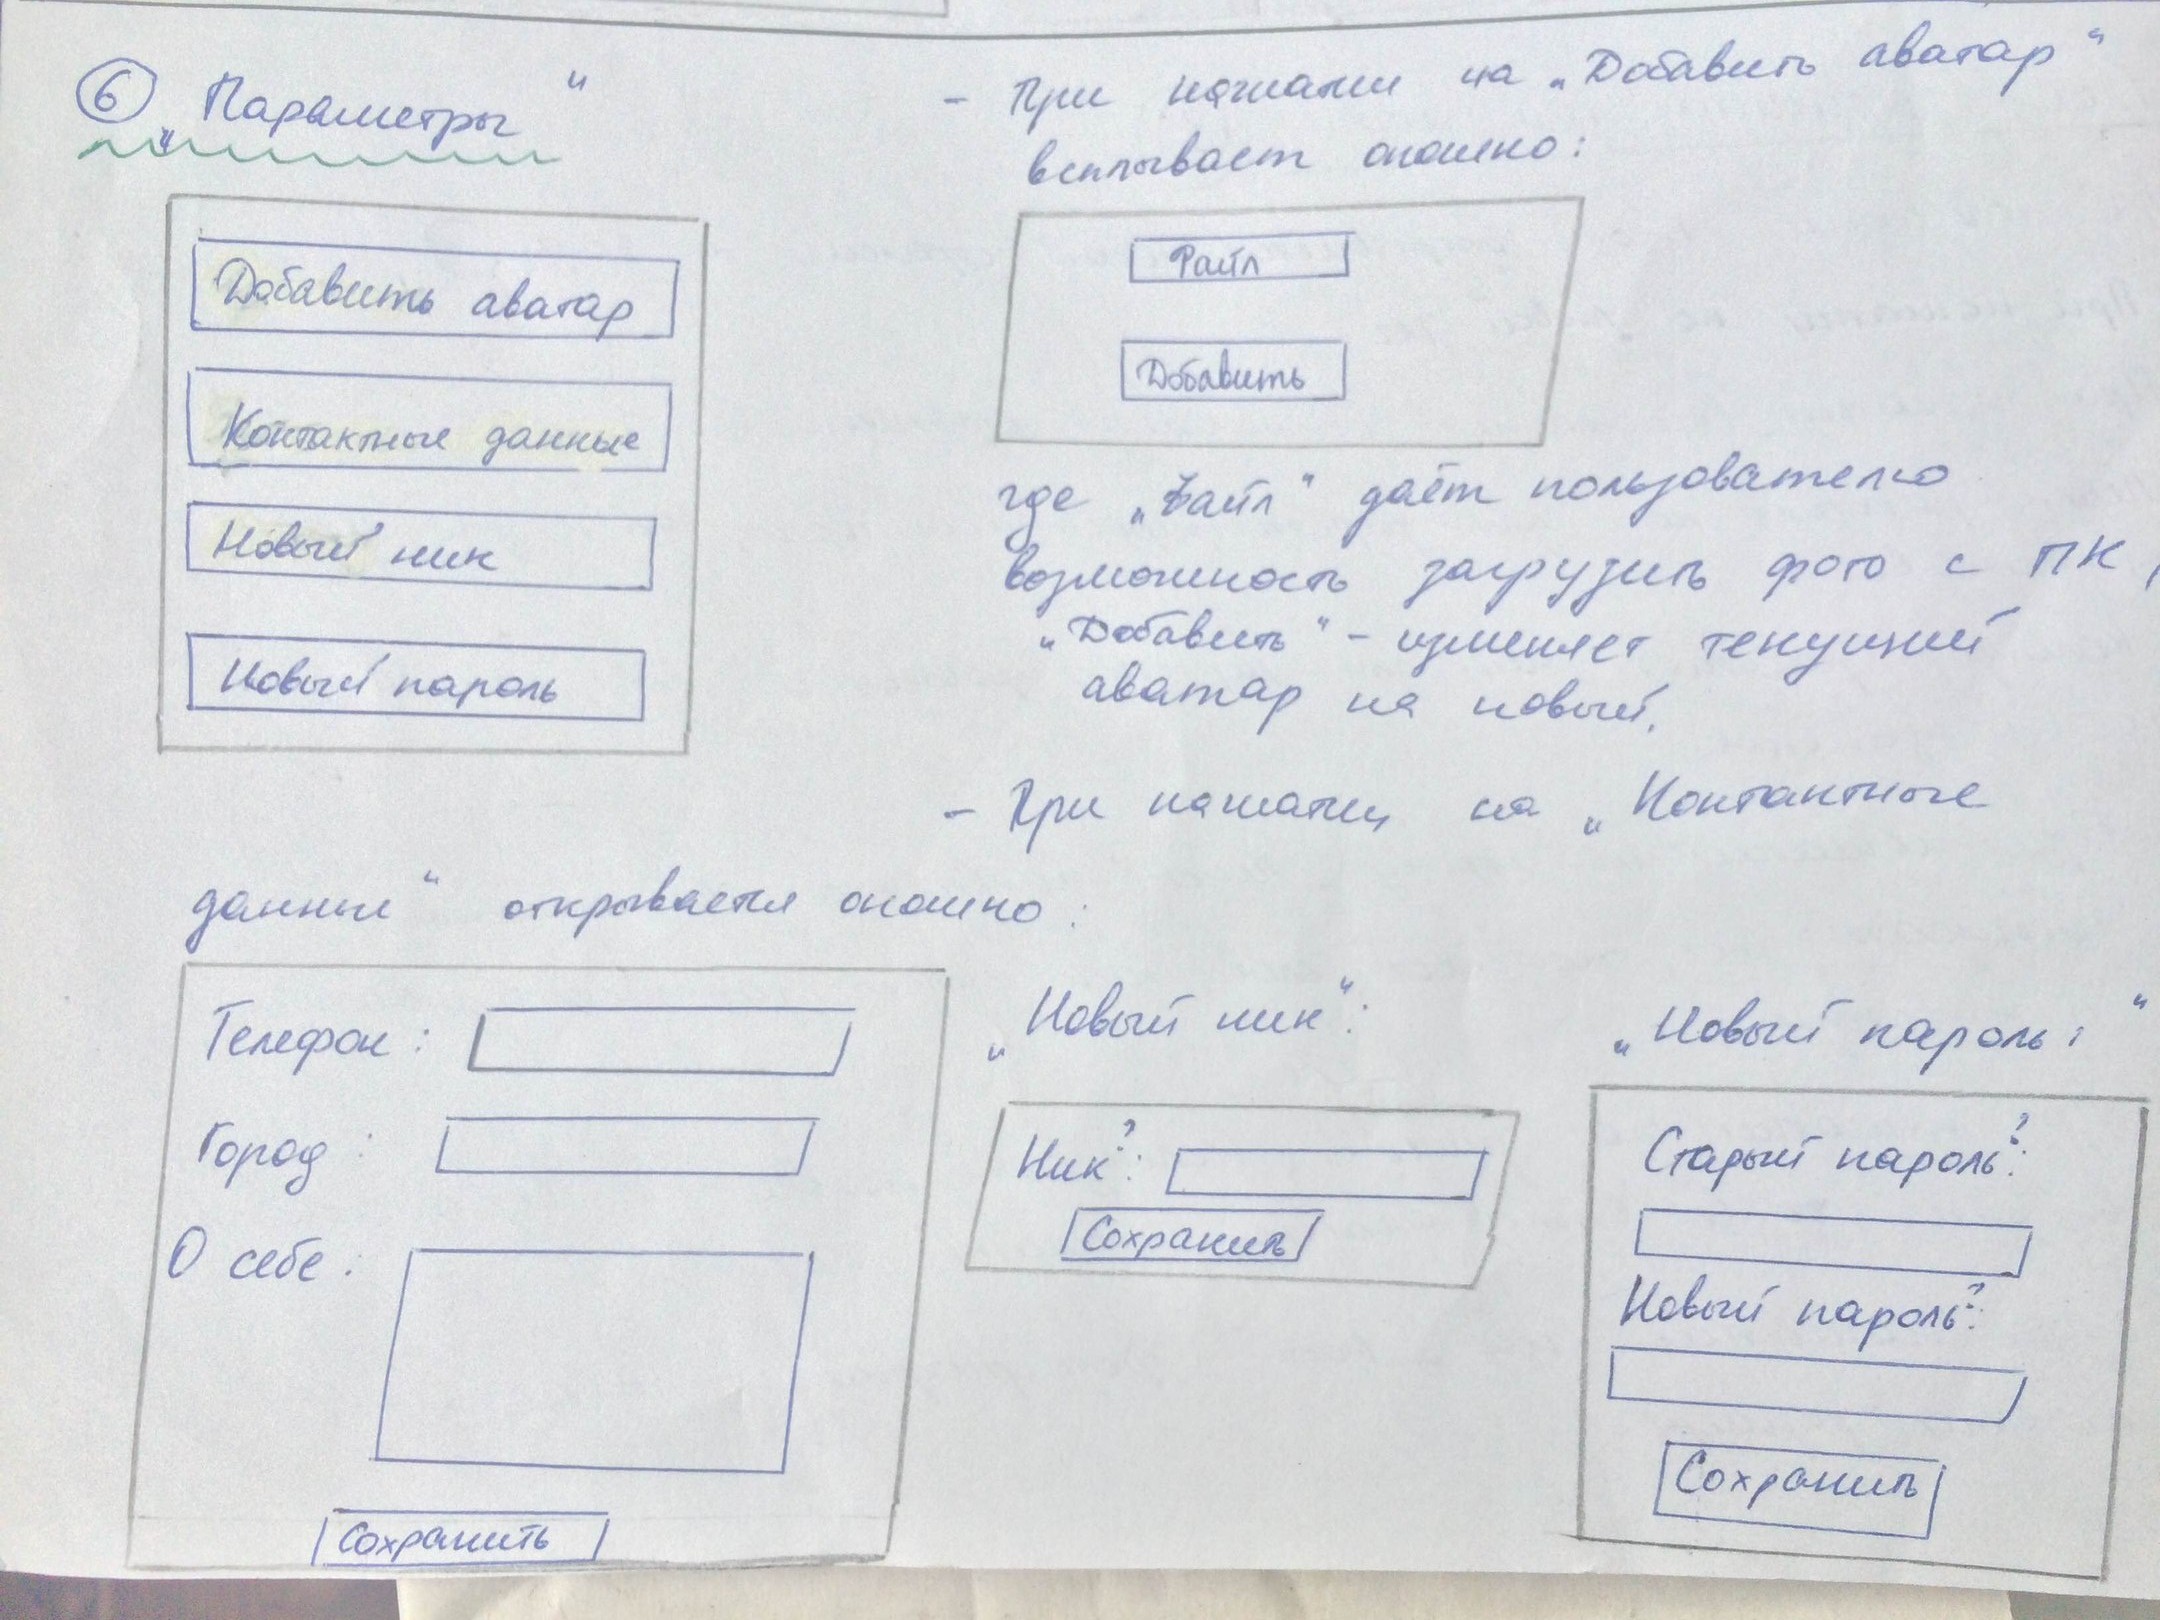 6 „Параметры“
Добавить аватар
Контактные данные
Новый ник
Новый пароль
- При нажатии на „Добавить аватар“
всплывает окошко:
Файл
Добавить
где „Файл“ даёт пользователю
возможность загрузить фото с ПК,
„Добавить“ - изменяет текущий
аватар на новый.
- При нажатии на „Контактные
данные“ открывается окошко:
Телефон:
Город:
О себе:
Сохранить
„Новый ник“:
Ник?:
Сохранить
„Новый пароль:“
Старый пароль?:
Новый пароль?:
Сохранить